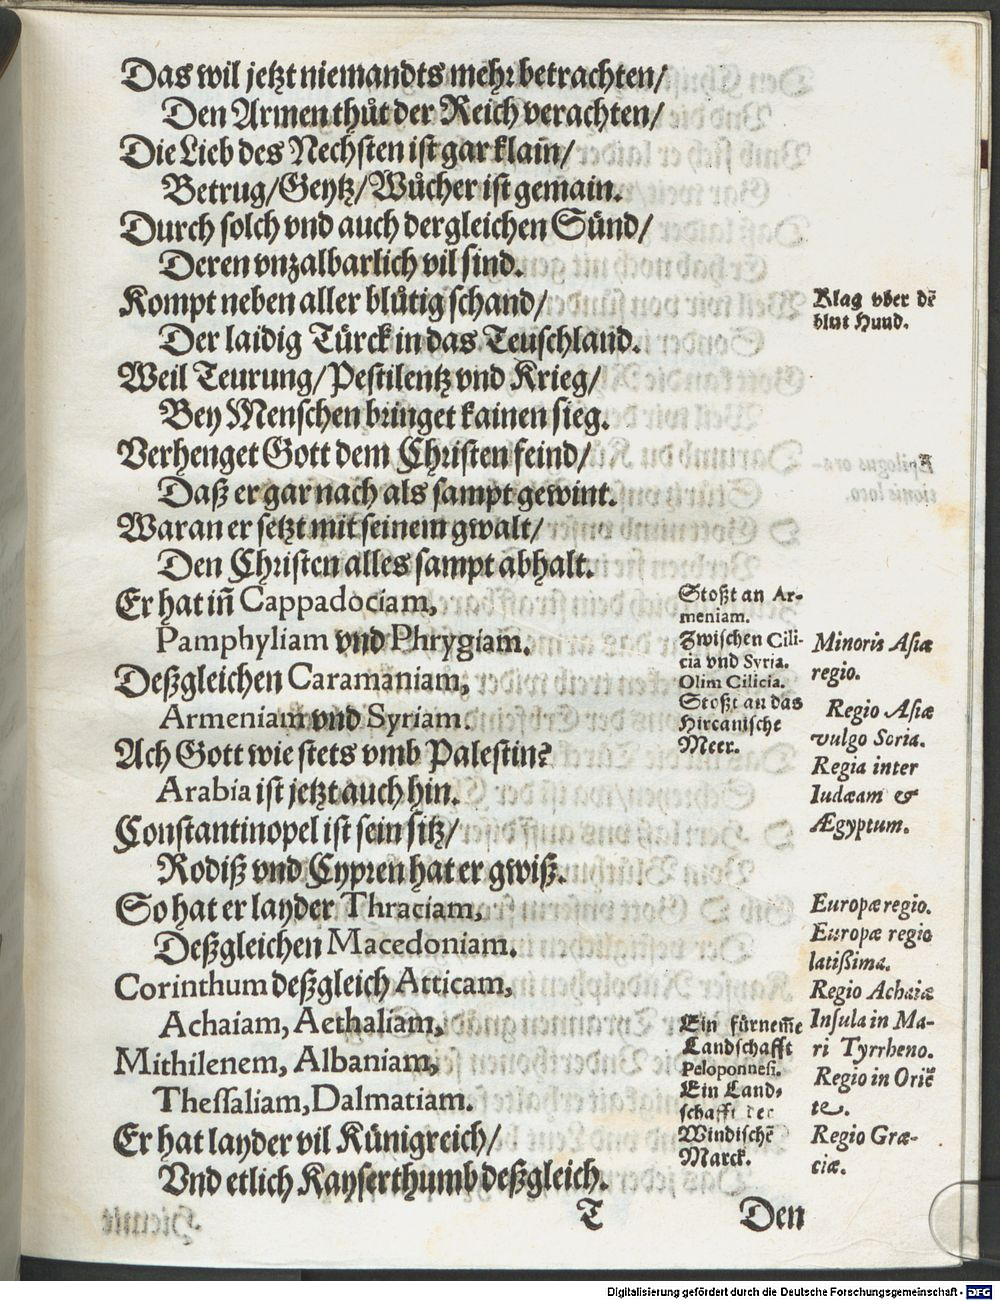 Das wil jetzt niemandts mehr betrachten/
Den Armen thůt der Reich verachten/
Die Lieb des Nechsten ist gar klain̄/
Betrug/Geytz/Wůcher ist gemain.
Durch solch vnd auch dergleichen Sünd/
Deren vnzalbarlich vil sind.
Kompt neben aller blůtig schand/
Der laidig Türck in das Teuschland.
Weil Teurung/Pestilentz vnd Krieg/
Bey Menschen bringet kainen sieg.
Verhenget Gott dem Christen feind/
Daß er gar nach als sampt gewint.
Waran er setzt mit seinem gwalt/
Den Christen alles sampt abhalt.
Er hat in̄ Cappadociam,
Pamphyliam vnd Phrygiam.
Deßgleichen Caramaniam,
Armeniam vnd Syriam.
Ach Gott wie stets vmb Palestin?
Arabia ist jetzt auch hin.
Constantinopel ist sein sitz/
Rodiß vnd Cypren hat er gwiß.
So hat er layder Thraciam,
Deßgleichen Macedoniam.
Corinthum deßgleich Atticam,
Achaiam, Aethaliam,
Mithilenem, Albaniam,
Thessaliam, Dalmatiam.
Er hat layder vil Künigreich/
Vnd etlich Kayserthumb deßgleich.
T Den
Klag vber dē
blut Hund.
Stoßt an Ar-
meniam.
Zwischen Cili-
cia vnd Syria.
Olim Cilicia.
Stoßt an das
Hircanische
Meer.
Ein fürnem̄e
Landschafft
Peloponnesi.
Ein Land-
schafft der
Windischē
Marck.
Minoris Asiæ
regio.
Regio Asiæ
vulgo Soria.
Regia inter
Iudæam &
Ægyptum.
Europæ regio.
Europæ regio
latißima.
Regio Achaiæ
Insula in Ma-
ri Tyrrheno.
Regio in Oriē
te.
Regio Græ-
ciæ.
Digitalisierung gefördert durch die Deutsche Forschungsgemeinschaft - DFG